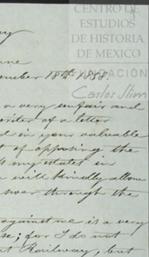 CENTRO DE
ESTUDIOS
DE HISTORIA
DE MEXICO
FUNDACIÓN
Carlos Slim
a very unfair and
writer of a letter
in your valuable
of opposing the
my estates in
will kindly allow
over through the
against me is a very
for I do not
Railway, but